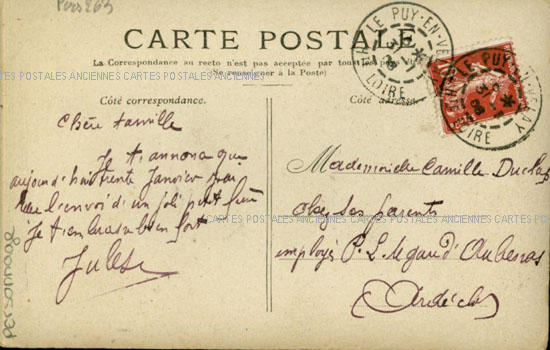 Pers 263
CARTE POSTALE
La Correspondance au recto n'est pas acceptée par tous les pays
(Se renseigner à la Poste)
CARTES POSTALES ANCIENNES CARTES POSTALES ANCIENNES
Côté correspondance.
Côté adresse.
LE PUY-EN-VELAY
Hte LOIRE
LE PUY-EN-VELAY
Hte LOIRE
Chère Camille
Je t annonce que
aujourd'hui trente Janvier
l'envoi d'un joli petit frère
Je t'embrasse bien fort
Jules
Mademoiselle Camille
chez ses parents
employé P. L. gare d'Aubenas
(Ardèche)
CARTES POSTALES ANCIENNES CARTES POSTALES ANCIENNES
personnage